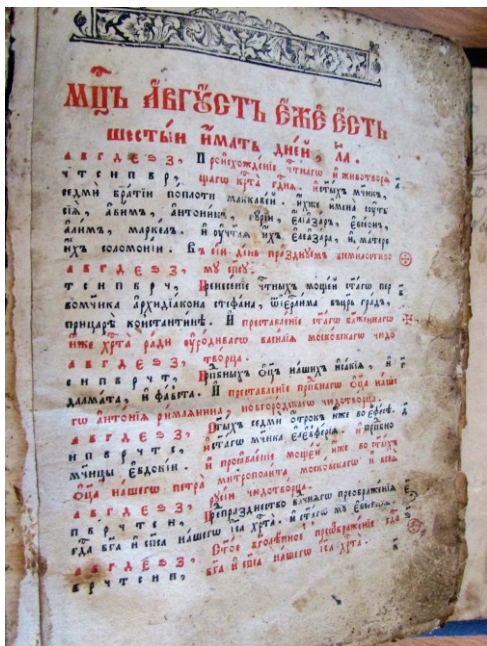 МЦЪ АВГꙊСТЪ ЕЖЕ ЕСТЬ
шестыи имать днеи, ла.
а в г д е ѕ з, Происхожденїе чтнагѡ и животворѧ
ч т с н п в р, щагѡ крта гднѧ. истыхъ мчнкъ,
седми братїи поплоти маккавеи. ихже имена суть
сїѧ, авимъ, антонинъ, гурїи, елеазаръ, евсеонъ,
алимъ, маркелъ. и оучтлѧ ихъ елеазара, и матере
ихъ соломонїи. Въ сїи день празднуемъ милостиво
а в г д е ѕ з, му спсу.
т с н п в р ч, Пренесенїе чтныхъ мощей стагѡ пер
вомчнка архидїакона стефана, ѿ їерлима въцрь градъ,
прицарѣ константинѣ. И преставленїе стагѡ блаженнагѡ
иже хрта ради оуродивагѡ василїа московскагѡ чюдо
а в г д е ѕ з, творца.
с н п в р ч т, Прпбныхъ оцъ нашихъ исакїа, и
далмата, и фавста. И преставленїе прпбнагѡ оца наше
гѡ антонїѧ римлѧнина, новгородскагѡ чюдотворца.
а в г д е ѕ з, Стыхъ седми отрокъ иже во ефесѣ.
н п в р ч т с, и стагѡ мчнка елевферїа. и прпбно
мчнцы евдокїи. и проѧвленїе мощей иже во стыхъ
оца нашегѡ петра митрополита московскагѡ и всеѧ
русїи чюдотворца.
а в г д е ѕ з, Предпразднство преображенїѧ
п в р ч т с н, гда бга и спса нашегѡ іса хрта. и стагѡ мч
а в г д е ѕ з, преѡбраженїе гда
в р ч т с н п, бга и спса нашегѡ іса хрта.